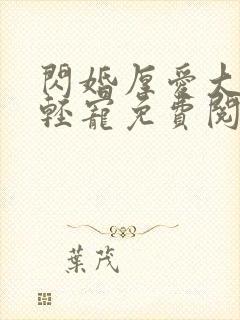 閃婚厚愛大
輕寵免費閱
葉茂